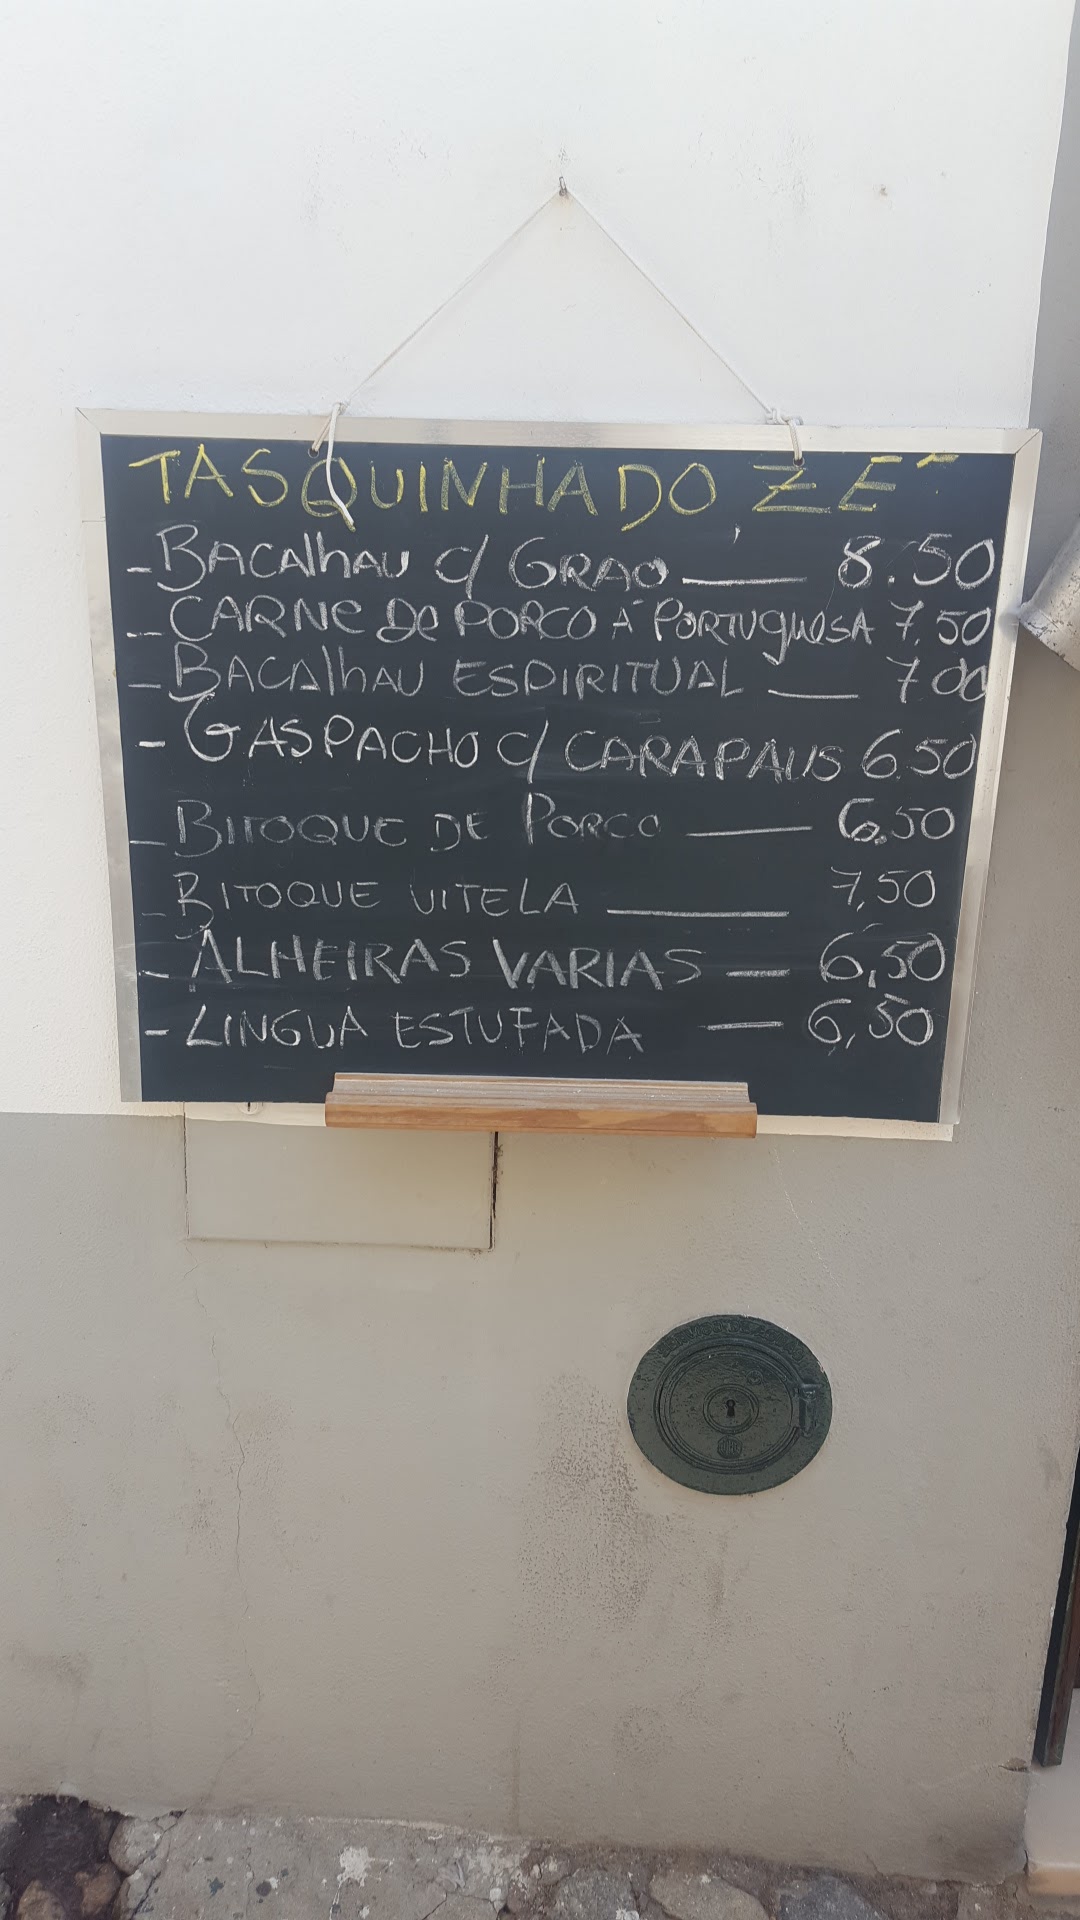 TASQUINHA DO ZÉ
- BACAlhAU c/ GRAO ___ 8.50
- CARNe De PORCO Á PORTuguesA 7,50
- BACAlhAU ESPIRITUAL ___ 7 00
- GASPACHO c/ CARAPAUS 6.50
- BITOQUE DE PORCO ___ 6,50
- BITOQUE VITELA ___ 7,50
- ALHEIRAS VARIAS — 6,50
- LINGUA ESTUFADA — 6,50